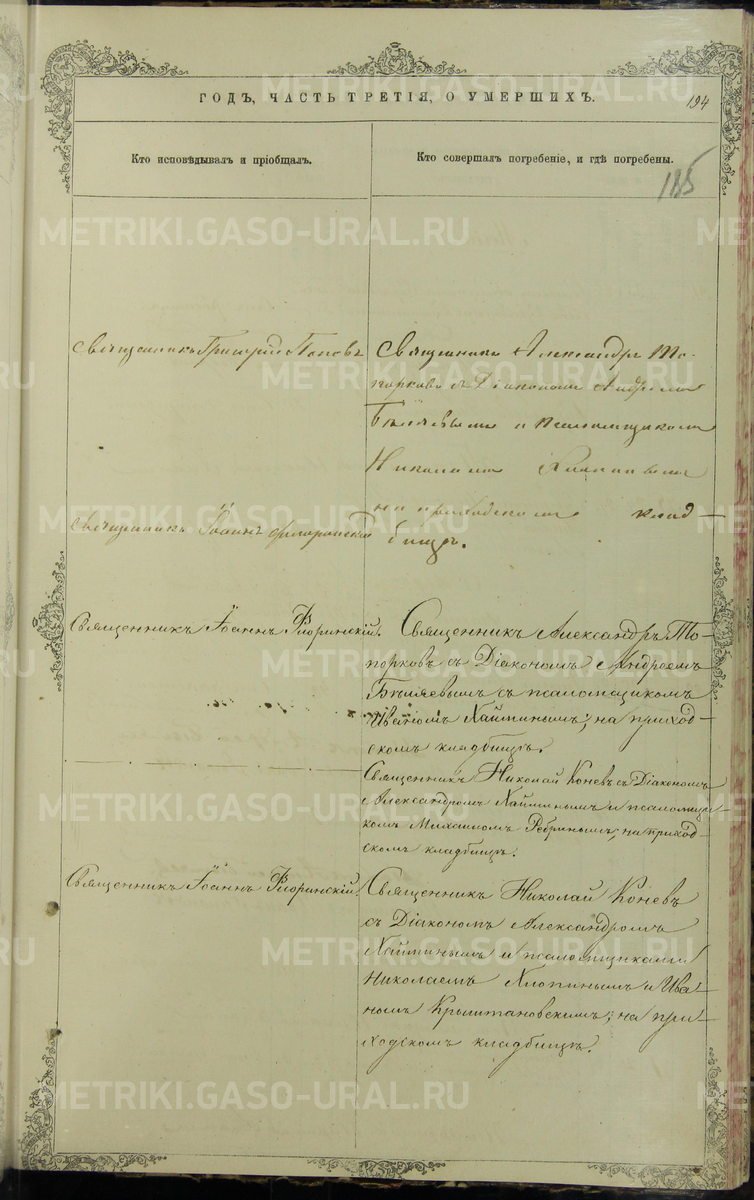 ГОДЪ, ЧАСТЬ ТРЕТІЯ, О УМЕРШИХЪ.
194
Кто исповѣдывалъ и пріобщалъ.
Кто совершалъ погребеніе, и гдѣ погребены.
185
METRIKI.GASO-URAL.RU
Священникъ Григорій Поповъ
Священникъ Александръ То-
порковъ съ Діакономъ Андреемъ
Бѣляевымъ и псаломщикомъ
Николаемъ
на приходскомъ клад-
бищѣ.
Священникъ Іоаннъ Флоринскій
Священникъ Іоаннъ Флоринскій.
Священникъ Александръ То-
порковъ съ Діакономъ Андреемъ
Бѣляевымъ съ псаломщикомъ
Иваномъ Хайтинымъ; на приход-
скомъ кладбищѣ.
Священникъ Николай Коневъ съ Діакономъ
Александромъ Хайтинымъ и псаломщи-
комъ Михаиломъ Ребринымъ, на приход-
скомъ кладбищѣ.
Священникъ Іоаннъ Флоринскій.
Священникъ Николай Коневъ
съ Діакономъ Александромъ
Хайтинымъ и псаломщиками
Николаемъ Хлопинымъ и Ива-
номъ Крыштановскимъ; на при-
ходскомъ кладбищѣ.